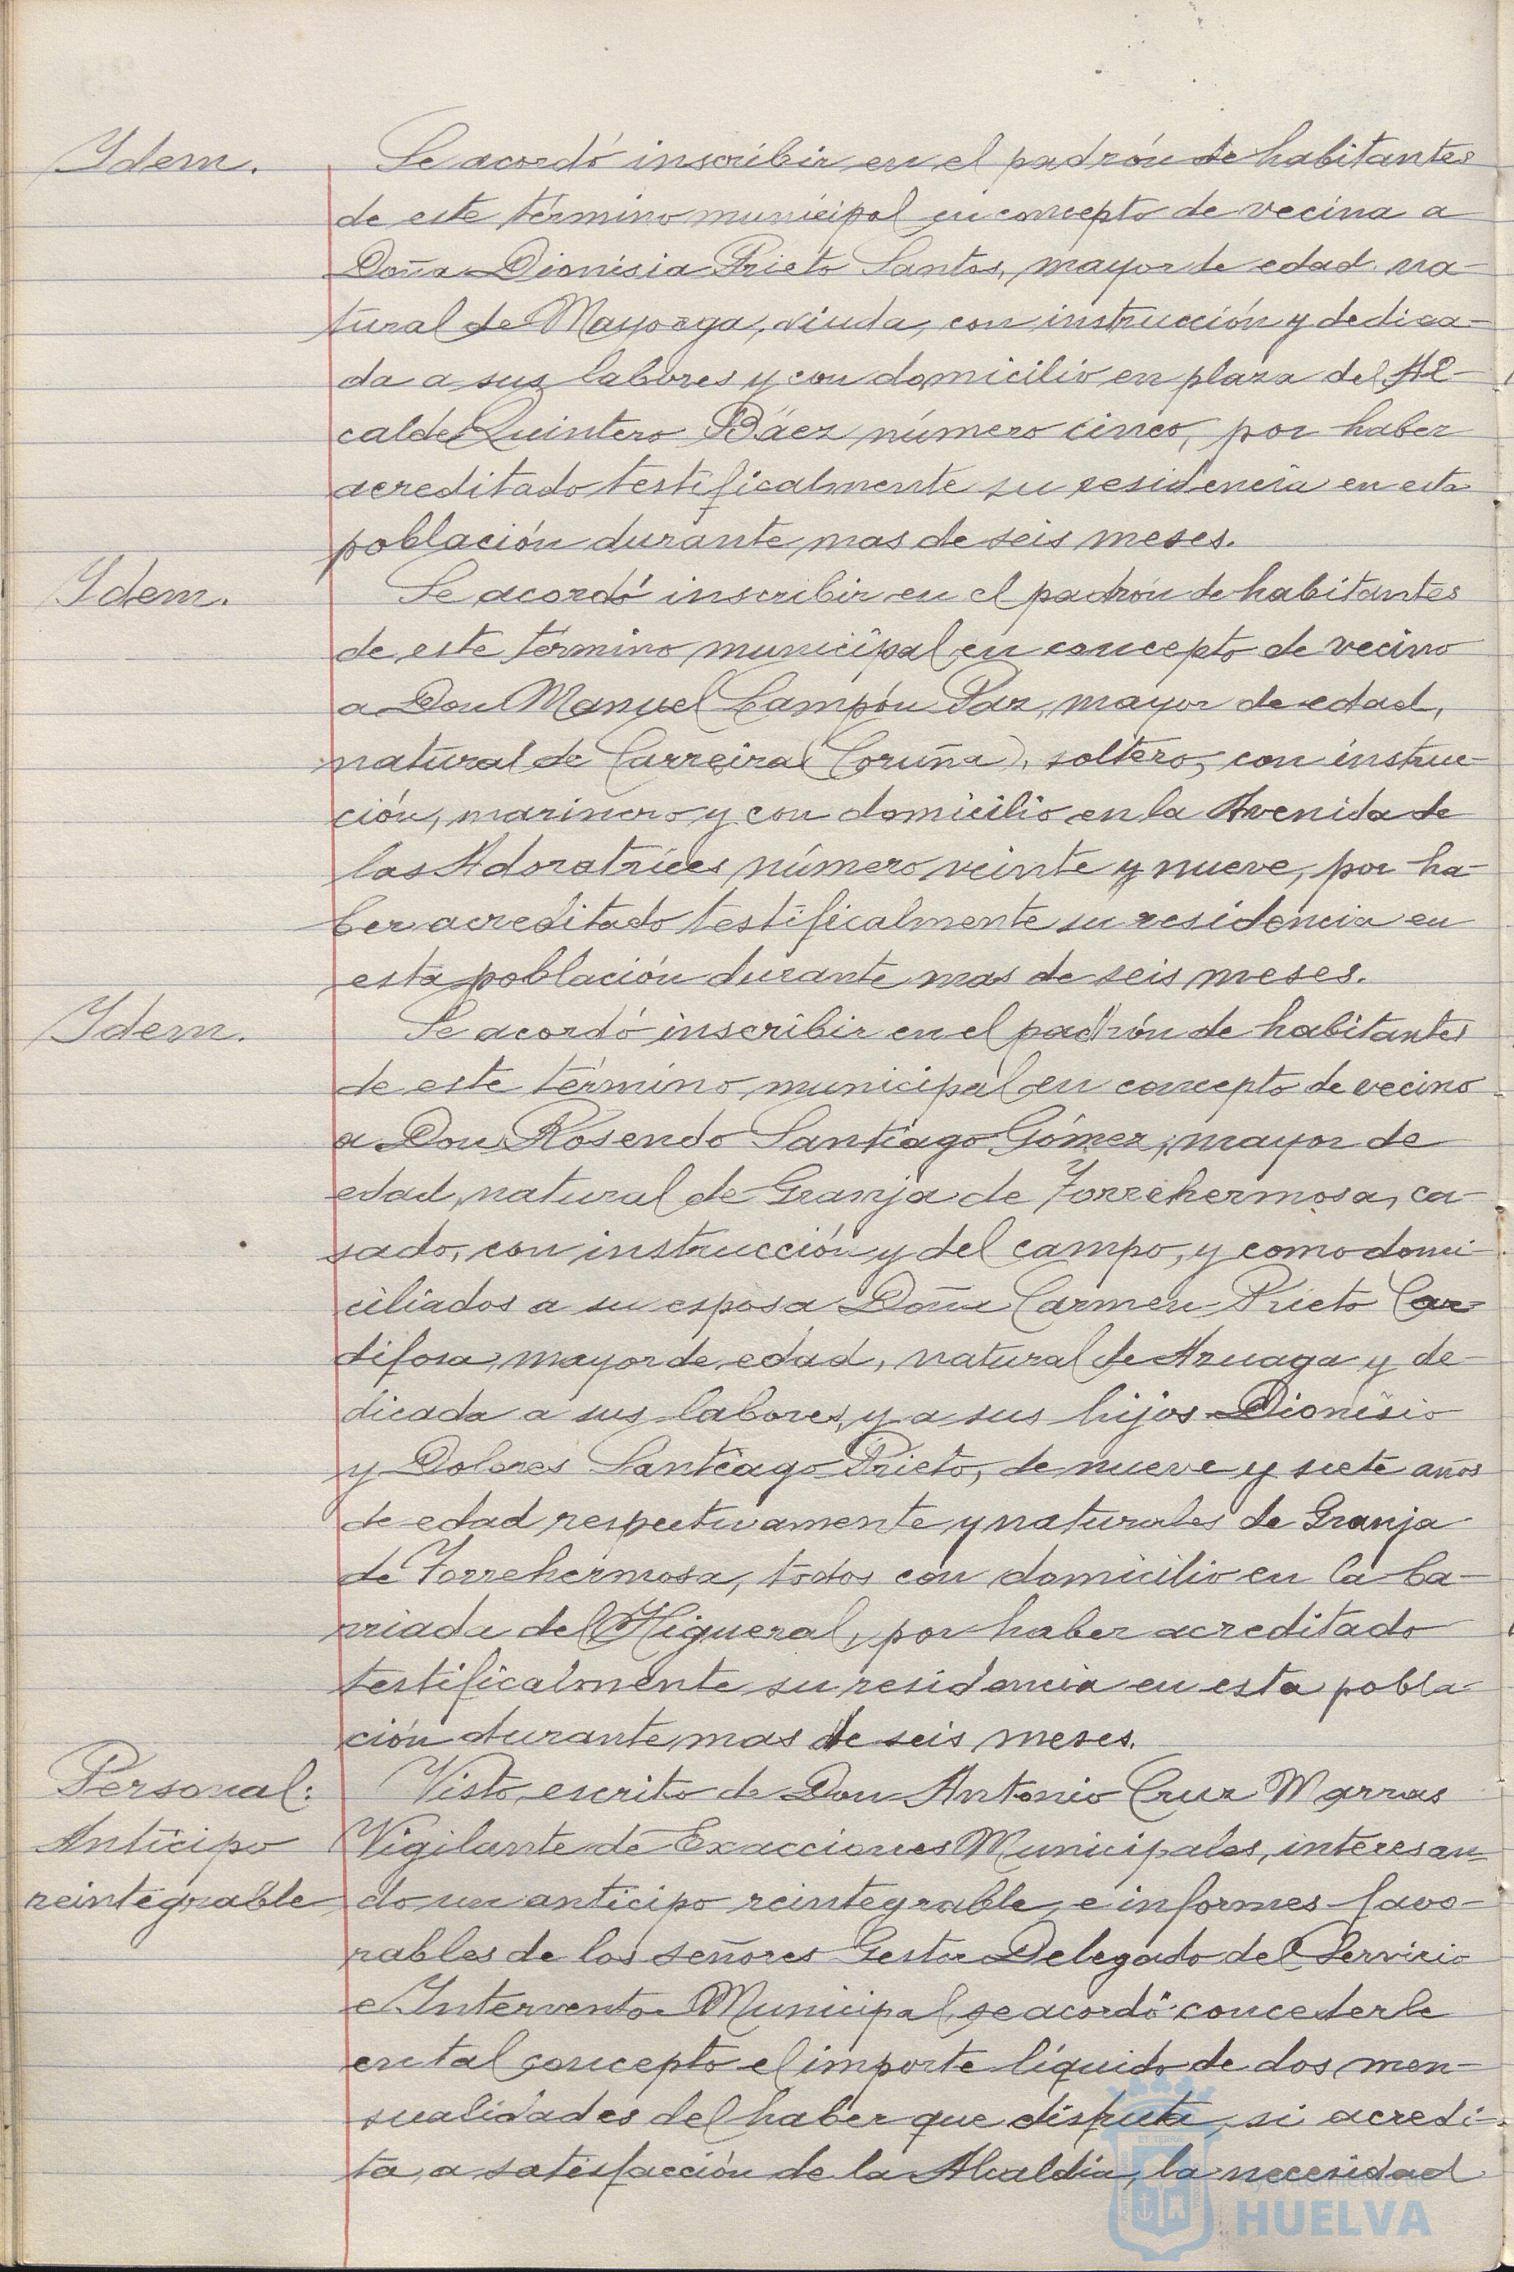 Ydem.
Se acordó inscribir en el padrón de habitantes
de este término municipal en concepto de vecina a
Doña Dionisia Prieto Santos, mayor de edad, na-
tural de Mayorga, viuda, con instrucción y dedica-
da a sus labores y con domicilio en plaza del Al-
calde Quintero Báez número cinco, por haber
acreditado testificalmente su residencia en esta
población durante mas de seis meses.
Ydem.
Se acordó inscribir en el padrón de habitantes
de este término municipal en concepto de vecino
a Don Manuel Campón Paz, mayor de edad,
natural de Carreira (Coruña), soltero, con instruc-
ción, marinero y con domicilio en la Avenida de
las Adoratrices número veinte y nueve, por ha-
ber acreditado testificalmente su residencia en
esta población durante mas de seis meses.
Ydem.
Se acordó inscribir en el padrón de habitantes
de este término municipal en concepto de vecino
a Don Rosendo Santiago Gómez, mayor de
edad, natural de Granja de Torrehermosa, ca-
sado, con instrucción y del campo, y como domi-
ciliados a su esposa Doña Carmen Prieto Car-
difosa, mayor de edad, natural de Azuaga y de-
dicada a sus labores, y a sus hijos Dionisio
y Dolores Santiago Prieto, de nueve y siete años
de edad respectivamente y naturales de Granja
de Torrehermosa, todos con domicilio en la ba-
rriada del Higueral, por haber acreditado
testificalmente su residencia en esta pobla-
ción durante mas de seis meses.
Personal:
Anticipo
reintegrable
Visto escrito de Don Antonio Cruz Marras
Vigilante de Exacciones Municipales, interesan-
do un anticipo reintegrable, e informes favo-
rables de los señores Gestor Delegado del Servicio
e Interventor Municipal, se acordó concederle
en tal concepto el importe líquido de dos men-
sualidades del haber que disfruta, si acredi-
ta, a satisfacción de la Alcaldía, la necesidad
Ayuntamiento de
HUELVA